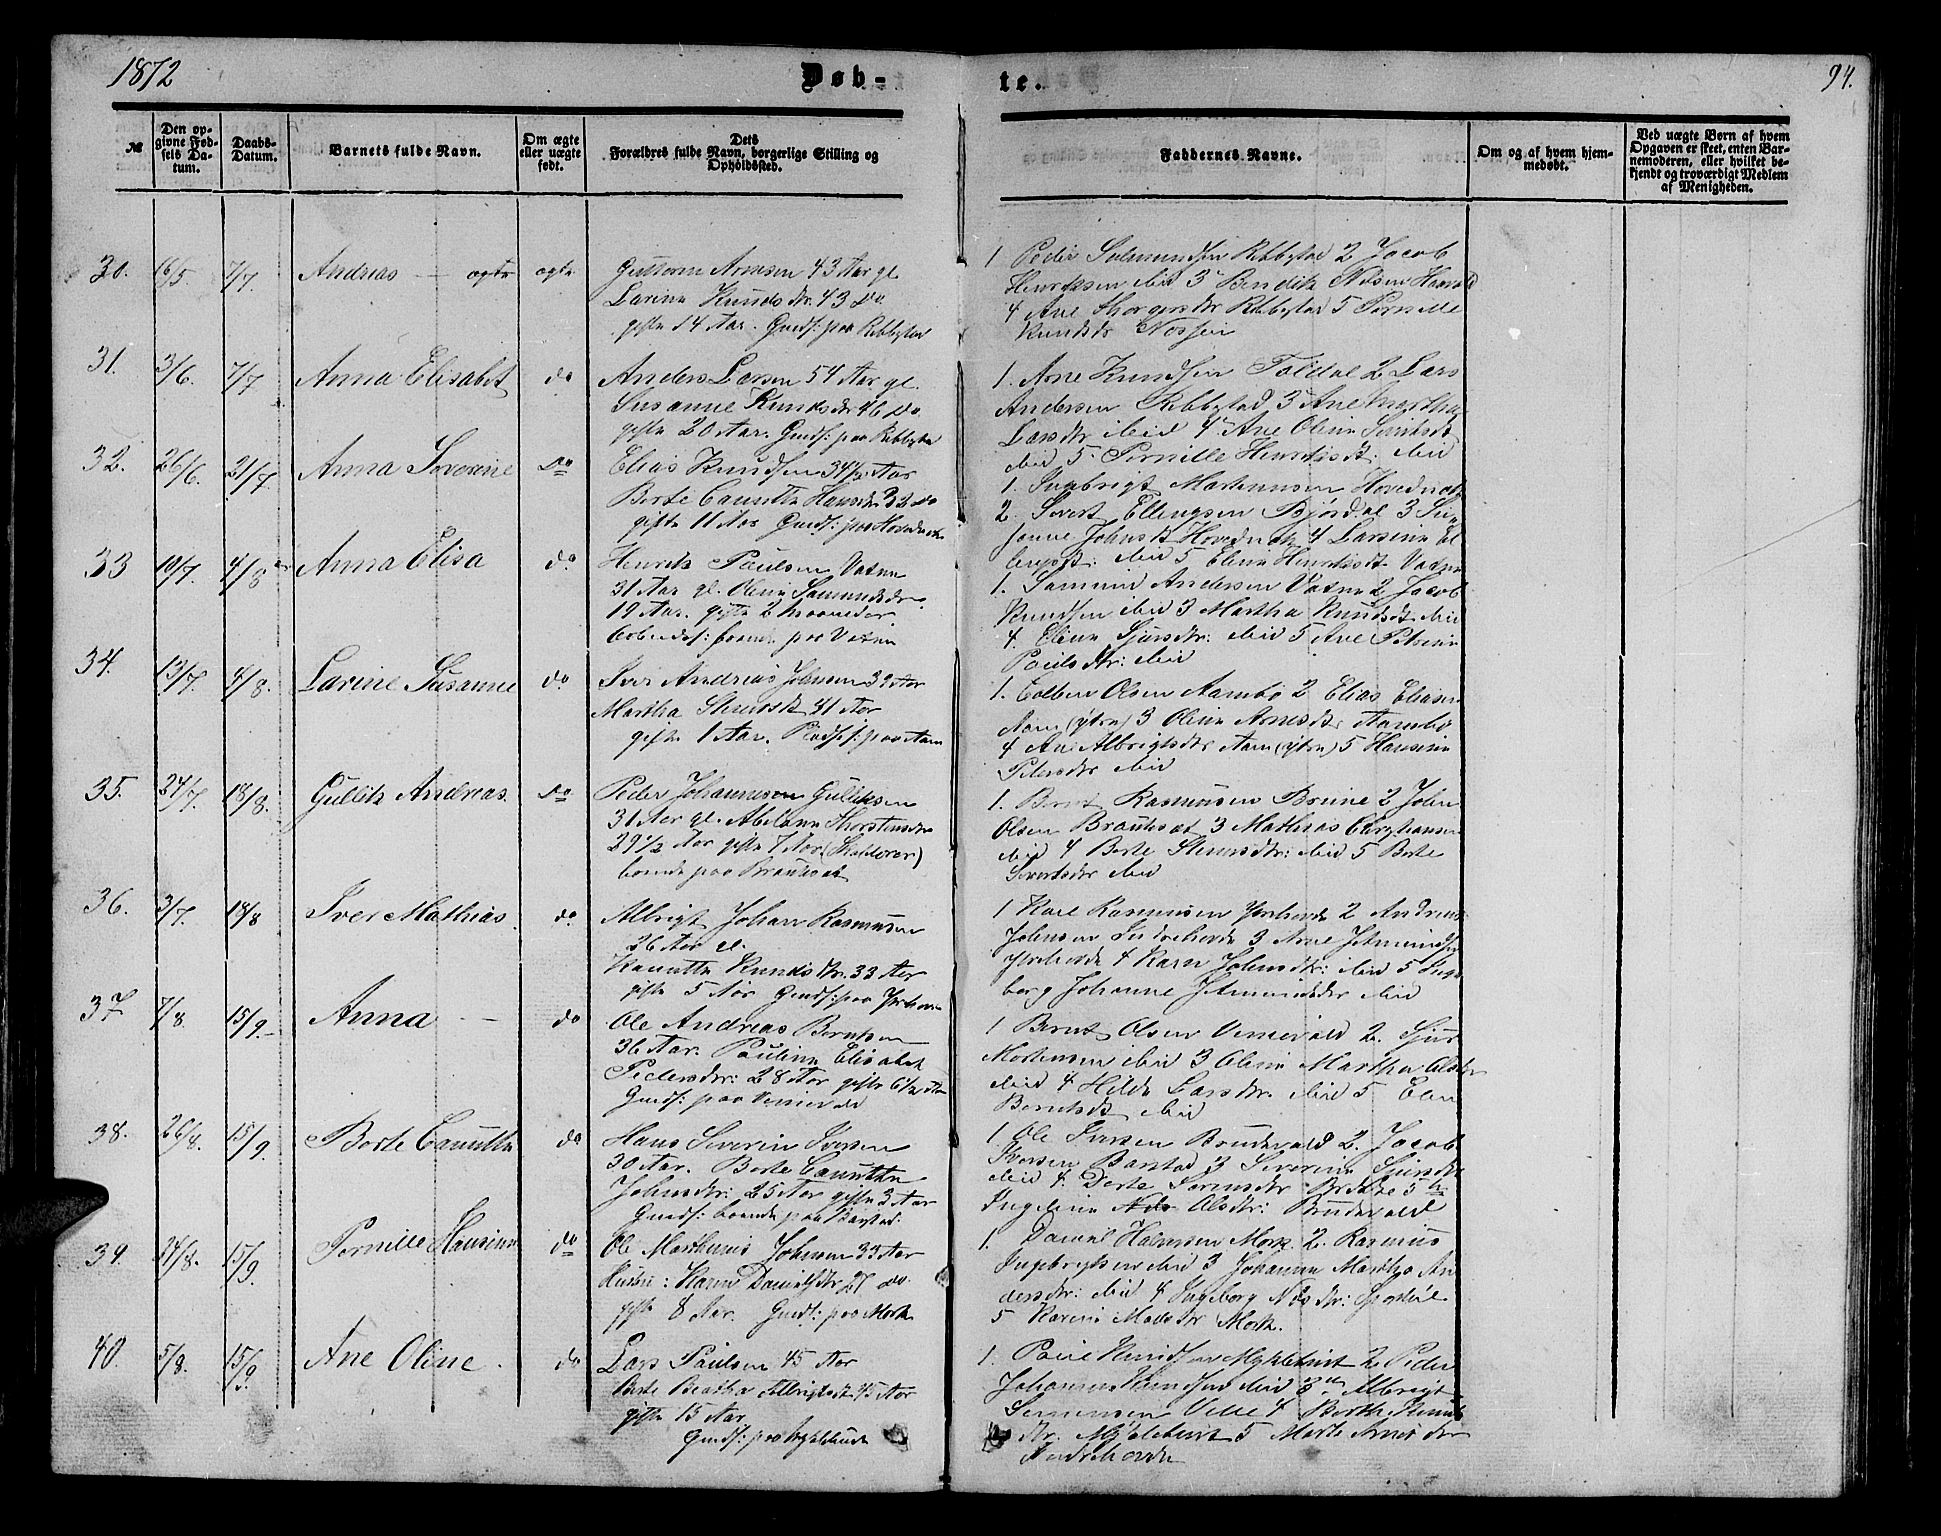 1872
Døb-
te.
94.
№
Den op-
givne Fød-
sels Da-
tum.
Daabs-
Datum.
Barnets fulde Navn.
Om ægte
eller uægte
født.
Dets
Forældres fulde Navn, borgerlige Stilling og
Opholdssted.
Faddernes Navne.
Om og af hvem hjem-
medøbt.
Ved uægte Børn af hvem
Opgaven er skeet, enten Bar-
nemoderen, eller hvilket be-
kjendt og troværdigt Medlem
af Menigheden.
30. 16/5. 7/7. Andreas — ægte ægte
Guttorm Arnesen 43 Aar gl.
Larine Knudsdtr. 43 do.
gifte 14 Aar. Gmdf: paa Rebbestad
1 Peder Salmundsen Rebbestad 2 Jacob
Henriksen ibid 3 Bendik Nilsen
4 Ane Thorgersdtr Rebbestad 5 Pernille
Knudsdr
31. 3/6. 7/7 Anna Elisabet do
Anders Larsen 54 Aar gl.
Susanne Knudsdtr 46 do.
gifte 20 Aar. Gmdf: paa Rebbestad
1. Arne Knudsen 2 Lars
Andersen Rebbestad 3 Ane Martha
Larsdtr ibid 4 Ane Oline
ibid 5. Pernille Henriksdt: ibid
32. 26/6. 21/7. Anna Severine do
Elias Knudsen 34½ Aar
Berte Canutte Hansdtr 32 do
gifte 11 Aar Gmdf: paa Hovdenak
1. Ingebrigt Martinusen Hovdenak
2. Sivert Ellingsen Bjørdal 3
Johnsdt Hovdenak 4 Larsine El
lingsdt: ibid 5 Eline Henriksdt Vatne
33 19/7. 4/8 Anna Elisa do
Henrik Paulsen Vatne
31 Aar gl. Oline Samundsdr.
19 Aar. gifte 2 Maaneder
Arbeidsf: boende paa Vatne
1. Samund Andersen Vatne 2 Jacob
Knudsen ibid 3 Martha Knudsdt. ibid
4. Eline Sjursdtr: ibid 5 Ane Petrine
Paulsdtr: ibid
34. 13/7. 4/8. Larine Susanne do.
Iver Andreas Johnsen 39 Aar
Martha 41 Aar
gifte 1 Aar. Pladsf: paa Aam
1. Colben Olsen Aambø 2 Elias Eliasen
Aam (ytre) 3 Oline Arnesdtr Aambø
4 Ane Albrigtsdtr Aam (ytre) 5 Hansine
Petersdtr ibid
35. 24/7. 18/8. Gullik Andreas. do
Peder Johannesen Gulliksen
31 Aar gl. Abelone Thorstensdr
29½ Aar gifte 7 Aar.
boende paa Brautesæt
1. Bernt Rasmusen Brune 2 John
Olsen Brautesæt 3 Mathias Christiansen
ibid 4 Berte ibid 5 Berte
Sivertsdtr ibid
36. 3/7. 18/8 Iver Mathias. do.
Albrigt Johan Rasmusen
36 Aar gl.
Kanutte Knudsdtr. 33 Aar
gifte 5 Aar Gmdf: paa
1 Karl Rasmusen 2 Andreas
Johnsen 3 Arne
4 Karn Johnsdtr: ibid 5 Inge
borg Johanne ibid
37. 7/8. 15/9. Anna — do
Ole Andreas Berntsen
36 Aar. Pauline Elisabet
Pedersdtr: 28 Aar gifte 6½ Aar
Gmdf: paa
1 Bernt Olsen 2. Sjur
Mortensen ibid 3 Oline Martha Olsdtr
ibid 4 Hilde Larsdtr. ibid 5 Elen
Berntsdt ibid
38. 26/8. 15/9. Berte Canutte do
Hans Severin Iversen
30 Aar. Berte Canutte
Johnsdtr: 25 Aar gifte 3 Aar
Gmdf: boende paa Barstad.
1. Ole Iversen Brudevold 2. Jacob
Iversen Barstad 3 Severine Sjursdtr
ibid 4. Dorte Sørensdtr Brekke 5
Ingeline Olsdtr: Brudevold
39. 24/8. 15/9 Pernille Hansine do
Ole Marthinus Johnsen 33 Aar
Hustru: Karn Danielsdtr 27 do.
gifte 8 Aar. Gmdf: paa Mork
1. Daniel Halvorsen Mork. 2. Rasmus
Ingebrigtsen ibid 3 Johanne Martha An
dersdtr: ibid 4 Ingeborg Nilsdtr:
5 Karen Madsdtr Mork.
40. 5/8. 15/9. Ane Oline. do
Lars Paulsen 45 Aar
Berte Beathe Albrigtsdt 45 Aar
gifte 15 Aar
Gmdf: paa Myklebust
1. Paul Knudsen Myklebust 2. Peder
Johannes Knudsen ibid 3 Albrigt
Sørensen 4 Berthe Knuds
dtr. Myklebust 5 Marte Arnesdtr